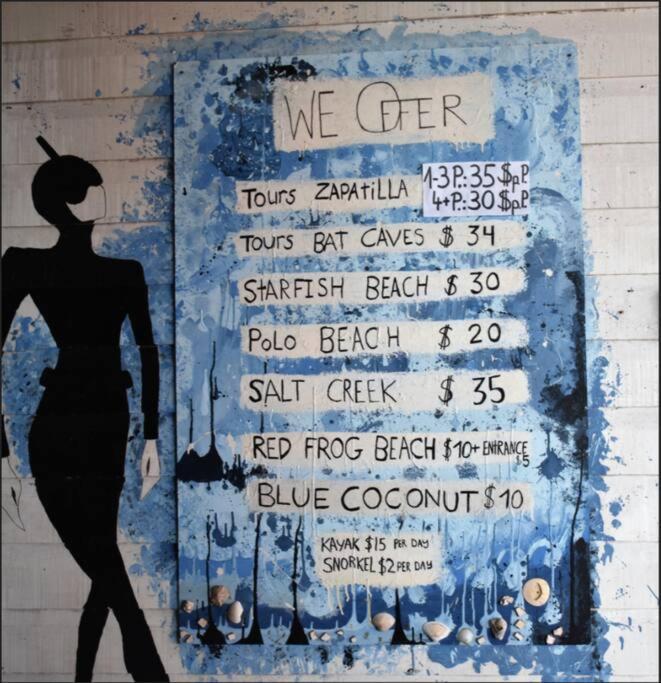 WE OFFER
Tours ZAPATiLLA 1-3P.:35 $p.P
4+P.:30 $p.P
Tours BAT CAVES $ 34
STARFISH BEACH $ 30
POLO BEACH $ 20
SALT CREEK $ 35
RED FROG BEACH $10+ ENTRANCE
$5
BLUE COCONUT $10
KAYAK $15 PER DAY
SNORKEL $2 PER DAY